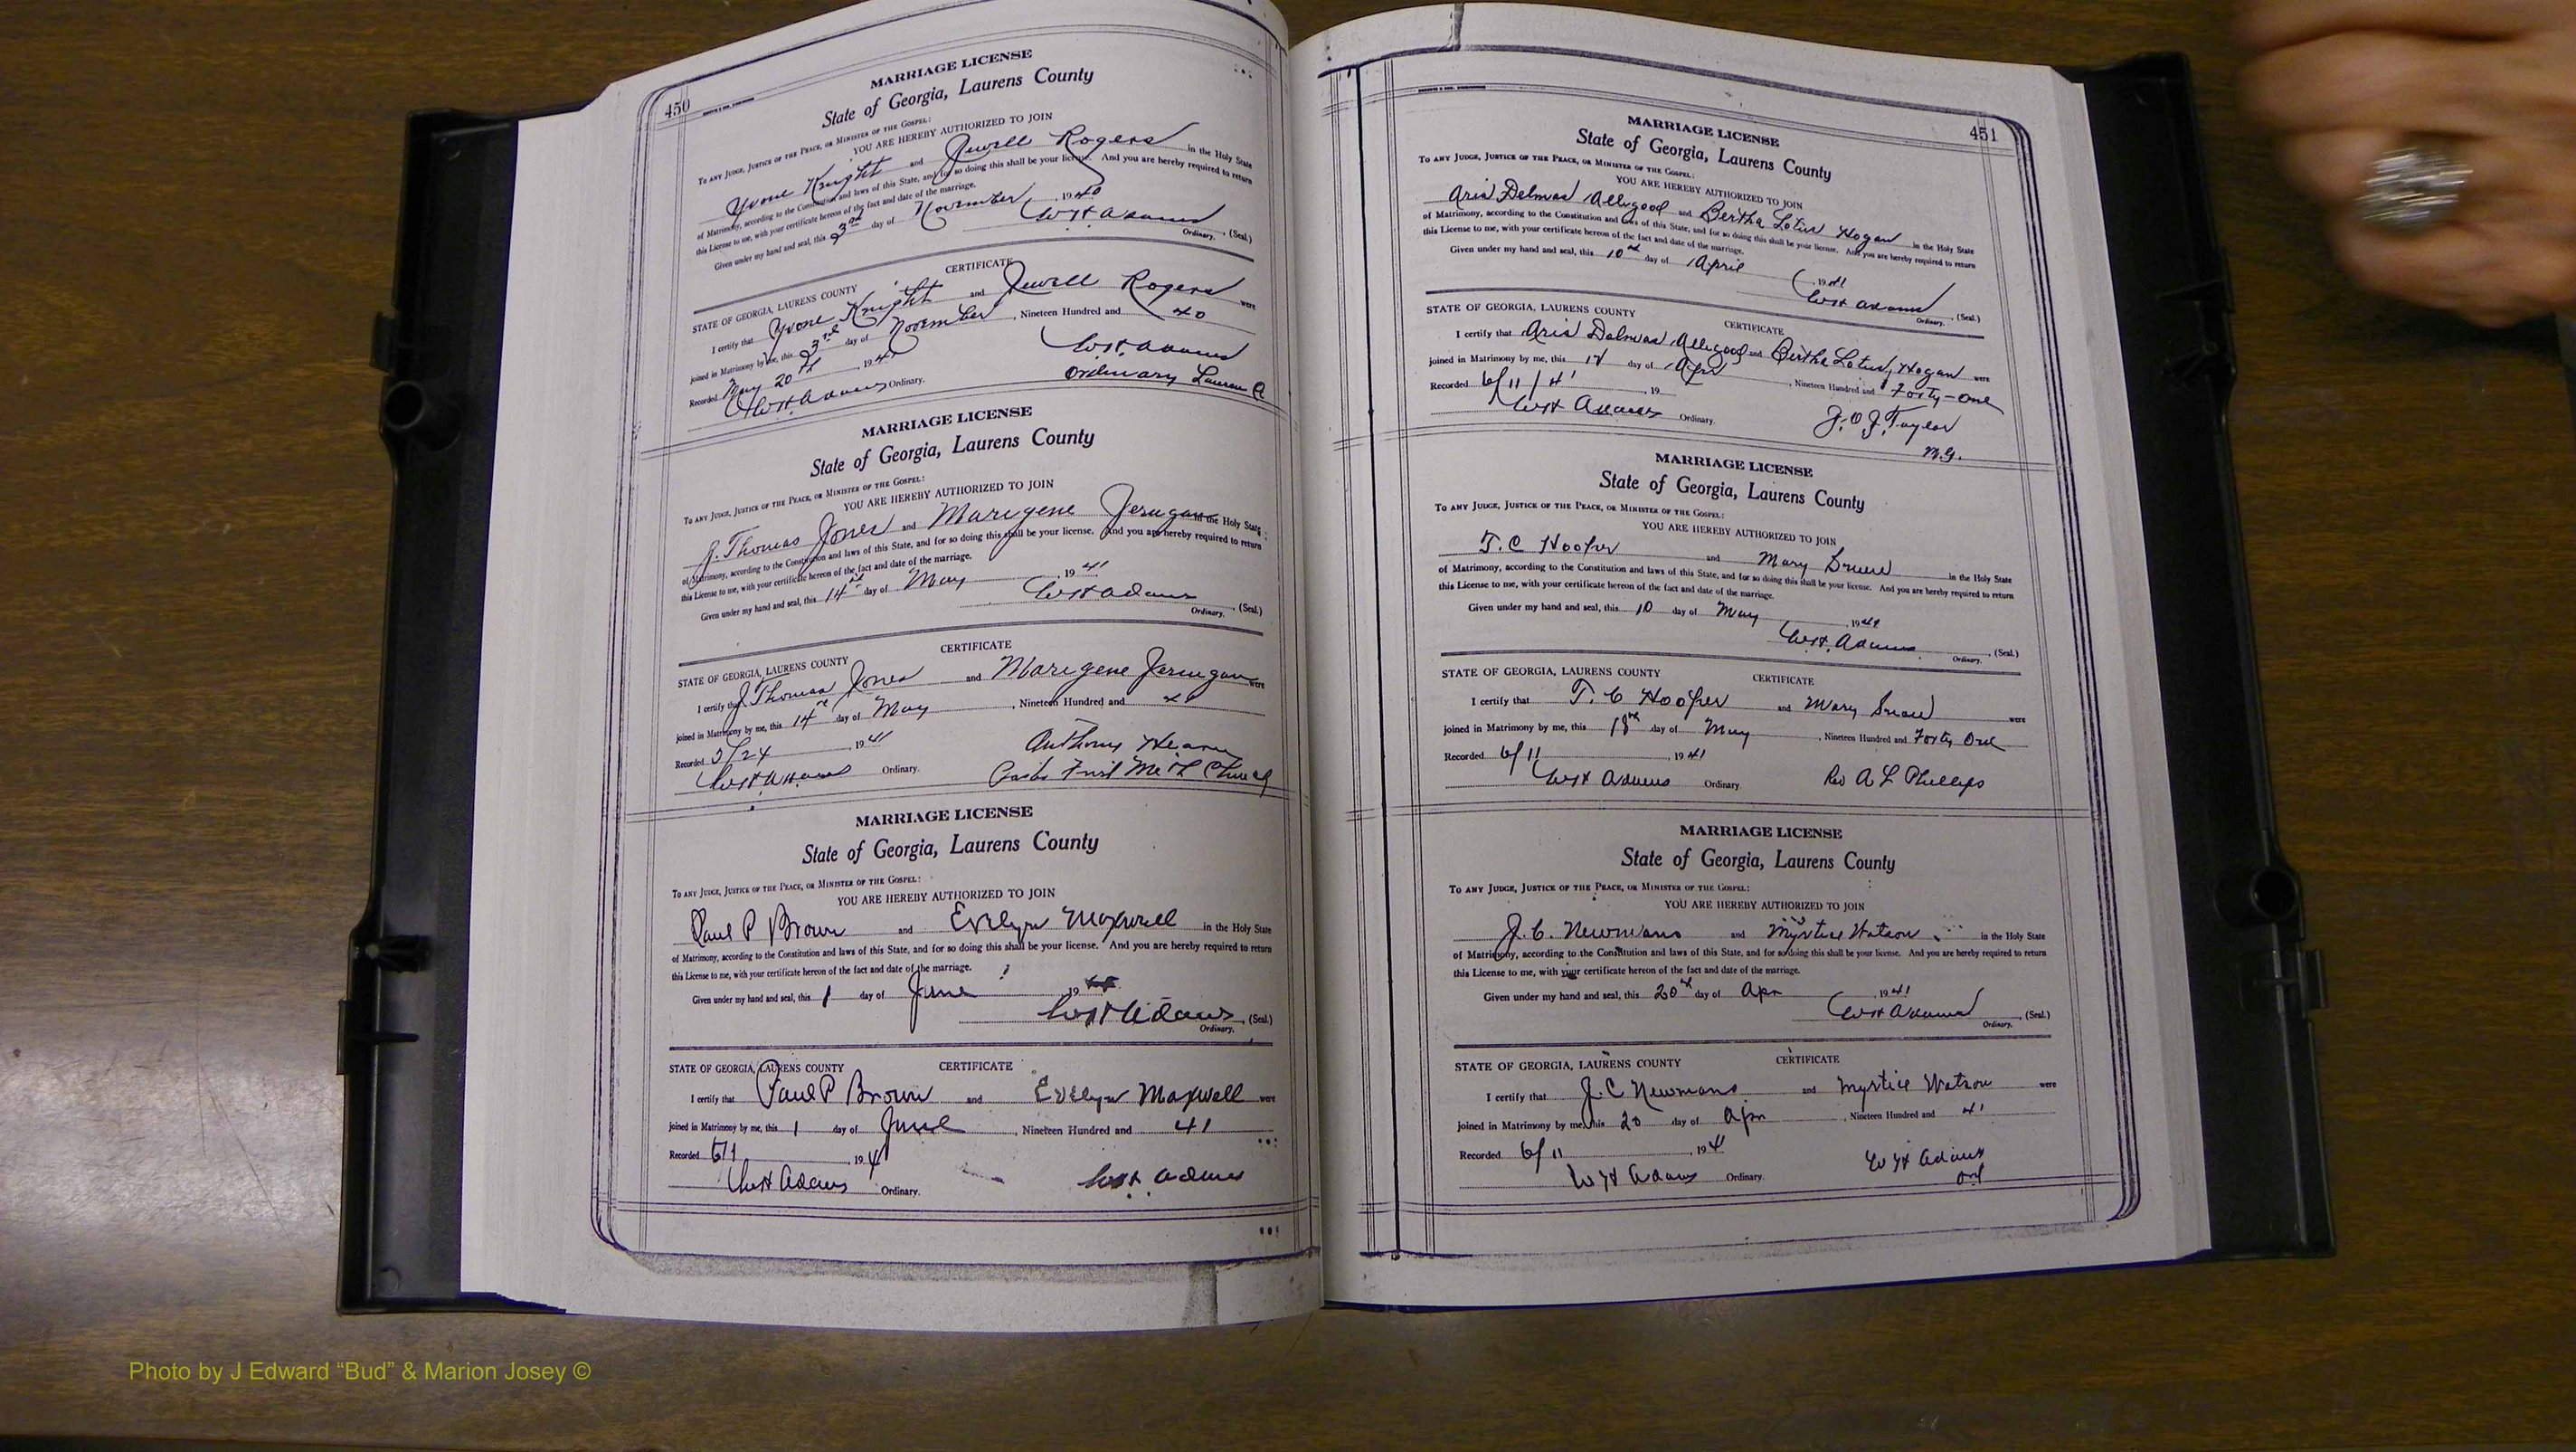 450
MARRIAGE LICENSE
State of Georgia, Laurens County
To any Judge, Justice of the Peace, or Minister of the Gospel:
YOU ARE HEREBY AUTHORIZED TO JOIN
Yvone Knight and Jewell Rogers in the Holy State
of Matrimony, according to the Constitution and laws of this State, and for so doing this shall be your license. And you are hereby required to return
this License to me, with your certificate hereon of the fact and date of the marriage.
Given under my hand and seal, this 3rd day of November, 1940
W. H. Adams, (Seal.)
Ordinary.
CERTIFICATE
STATE OF GEORGIA, LAURENS COUNTY
I certify that Yvone Knight and Jewell Rogers were
joined in Matrimony by me, this 3rd day of November, Nineteen Hundred and 40
Recorded May 20th, 1941 W. H. Adams
W. H. Adams Ordinary. Ordinary Laurens
MARRIAGE LICENSE
State of Georgia, Laurens County
To any Judge, Justice of the Peace, or Minister of the Gospel:
YOU ARE HEREBY AUTHORIZED TO JOIN
J. Thomas Jones and Marigene Jernigan in the Holy State
of Matrimony, according to the Constitution and laws of this State, and for so doing this shall be your license. And you are hereby required to return
this License to me, with your certificate hereon of the fact and date of the marriage.
Given under my hand and seal, this 14th day of May, 1941
W H Adams, (Seal.)
Ordinary.
CERTIFICATE
STATE OF GEORGIA, LAURENS COUNTY
I certify that J Thomas Jones and Marigene Jernigan were
joined in Matrimony by me, this 14th day of May, Nineteen Hundred and
Recorded 5/24, 1941 Anthony Hearn
W. H. Adams Ordinary. First Meth Church
MARRIAGE LICENSE
State of Georgia, Laurens County
To any Judge, Justice of the Peace, or Minister of the Gospel:
YOU ARE HEREBY AUTHORIZED TO JOIN
Paul P Brown and Evelyn Maxwell in the Holy State
of Matrimony, according to the Constitution and laws of this State, and for so doing this shall be your license. And you are hereby required to return
this License to me, with your certificate hereon of the fact and date of the marriage.
Given under my hand and seal, this 1 day of June, 19
W H Adams, (Seal.)
Ordinary.
STATE OF GEORGIA, LAURENS COUNTY CERTIFICATE
I certify that Paul P Brown and Evelyn Maxwell were
joined in Matrimony by me, this 1 day of June, Nineteen Hundred and 41
Recorded 6/1, 194
W H Adams Ordinary. W. H. Adams
451
MARRIAGE LICENSE
State of Georgia, Laurens County
To any Judge, Justice of the Peace, or Minister of the Gospel:
YOU ARE HEREBY AUTHORIZED TO JOIN
Aris Delmas Allegood and Bertha Lotus Hogan in the Holy State
of Matrimony, according to the Constitution and laws of this State, and for so doing this shall be your license. And you are hereby required to return
this License to me, with your certificate hereon of the fact and date of the marriage.
Given under my hand and seal, this 10th day of April, 1941
W H Adams, (Seal.)
Ordinary.
STATE OF GEORGIA, LAURENS COUNTY CERTIFICATE
I certify that Aris Delmas Allegood and Bertha Lotus Hogan were
joined in Matrimony by me, this day of Apr, Nineteen Hundred and Forty-one
Recorded 6/11/41, 19
W H Adams Ordinary. J. O. J. Taylor
M.G.
MARRIAGE LICENSE
State of Georgia, Laurens County
To any Judge, Justice of the Peace, or Minister of the Gospel:
YOU ARE HEREBY AUTHORIZED TO JOIN
T. C Hooper and Mary in the Holy State
of Matrimony, according to the Constitution and laws of this State, and for so doing this shall be your license. And you are hereby required to return
this License to me, with your certificate hereon of the fact and date of the marriage.
Given under my hand and seal, this 10 day of May, 1941
W. H. Adams, (Seal.)
Ordinary.
STATE OF GEORGIA, LAURENS COUNTY CERTIFICATE
I certify that T. C Hooper and Mary were
joined in Matrimony by me, this 18th day of May, Nineteen Hundred and Forty One
Recorded 6/11, 1941
W H Adams Ordinary. Rev A L Phillips
MARRIAGE LICENSE
State of Georgia, Laurens County
To any Judge, Justice of the Peace, or Minister of the Gospel:
YOU ARE HEREBY AUTHORIZED TO JOIN
J. C. Newmans and Myrtice Watson in the Holy State
of Matrimony, according to the Constitution and laws of this State, and for so doing this shall be your license. And you are hereby required to return
this License to me, with your certificate hereon of the fact and date of the marriage.
Given under my hand and seal, this 20th day of Apr, 1941
W H Adams, (Seal.)
Ordinary.
STATE OF GEORGIA, LAURENS COUNTY CERTIFICATE
I certify that J. C Newmans and Myrtice Watson were
joined in Matrimony by me, this 20 day of Apr, Nineteen Hundred and 41
Recorded 6/11, 194
W H Adams Ordinary. W H Adams
Ord
Photo by J Edward “Bud” & Marion Josey ©